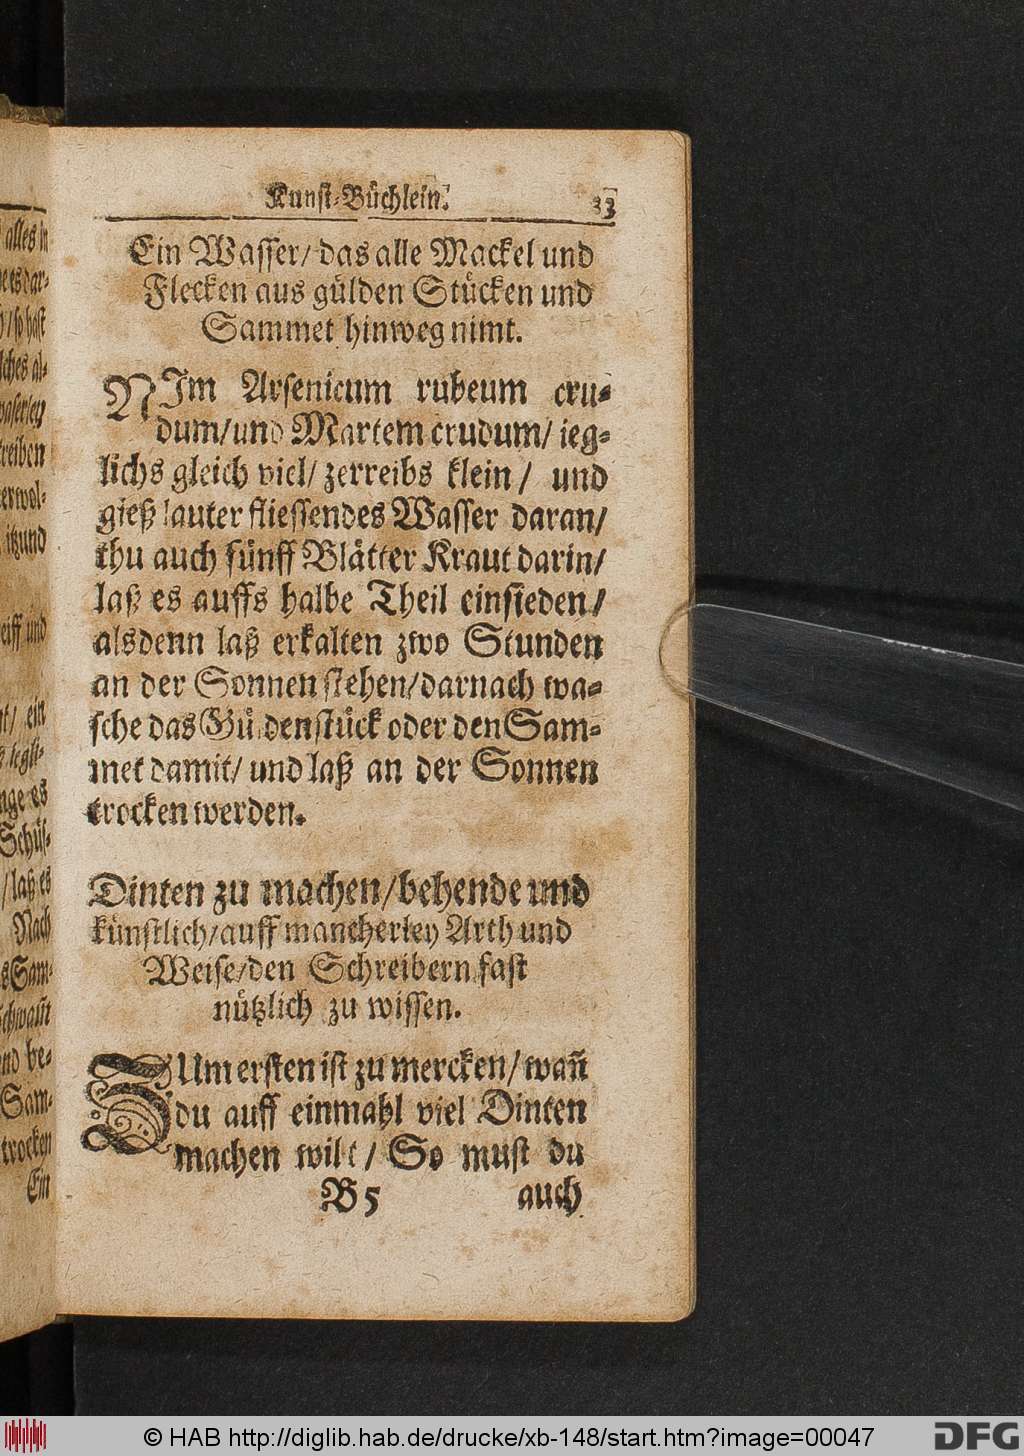 Kunst-Büchlein. 33
Ein Wasser/ das alle Mackel und
Flecken aus gülden Stücken und
Sammet hinweg nimt.
NIm Arsenicum rubeum cru-
dum/und Martem crudum/ ieg-
lichs gleich viel/ zerreibs klein / und
gieß lauter fliessendes Wasser daran/
thu auch fünff Blätter Kraut darin/
laß es auffs halbe Theil einsieden/
alsdenn laß erkalten zwo Stunden
an der Sonnen stehen/darnach wa-
sche das Güldenstück oder den Sam-
met damit/ und laß an der Sonnen
trocken werden.
Dinten zu machen/behende und
künstlich/auff mancherley Arth und
Weise/den Schreibern fast
nützlich zu wissen.
ZUm ersten ist zu mercken/ wañ
du auff einmahl viel Dinten
machen wilt / So must du
B 5 auch
alles in
es dar-
/ so hast
lches al-
treiben
itzund
eiff und
ein
nge es
Schüs-
/ laß es
Nach
Sam-
nd be-
Sam-
trocken
Ein
© HAB http://diglib.hab.de/drucke/xb-148/start.htm?image=00047
DFG